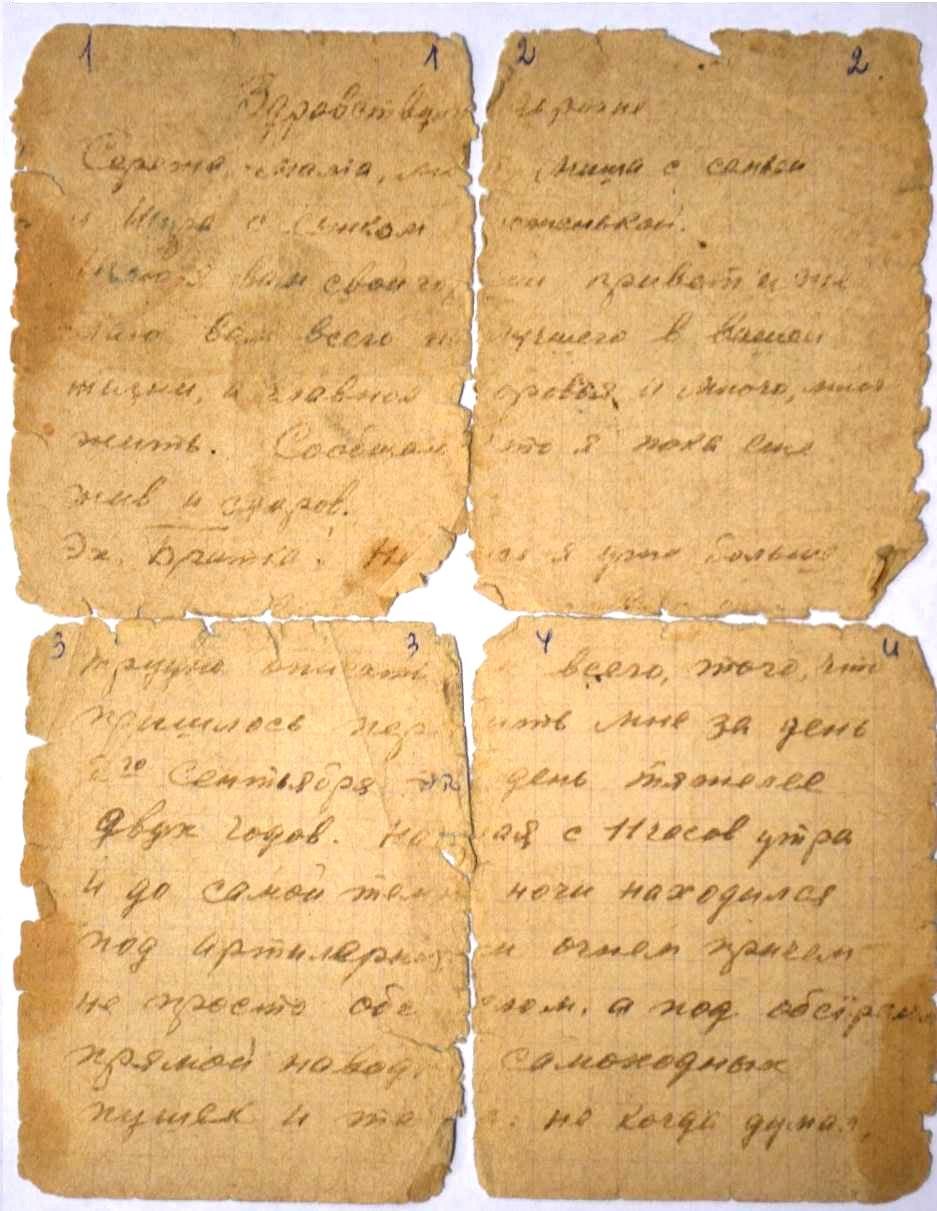 1 1 2 2
Здравствуйте
Сережа, мама, Миша с семьей
и Шура с сынком
вам свой привет и же
лаю вам всего лучшего в вашей
жизни, а главное и много, много
жить. Сообщаю что я пока еще
жив и сдаров.
Эх, Братка! я уже больше
3 3 4 4
трудно описать всего, того, что
пришлось пережить мне за день
2го Сентября день тяжелее
двух годов. Начиная с 11 часов утра
и до самой темной ночи находился
под артилерийским огнем причем
не просто обстрелом, а под обстрелом
прямой наводкой самоходных
пушек и не когда думал,